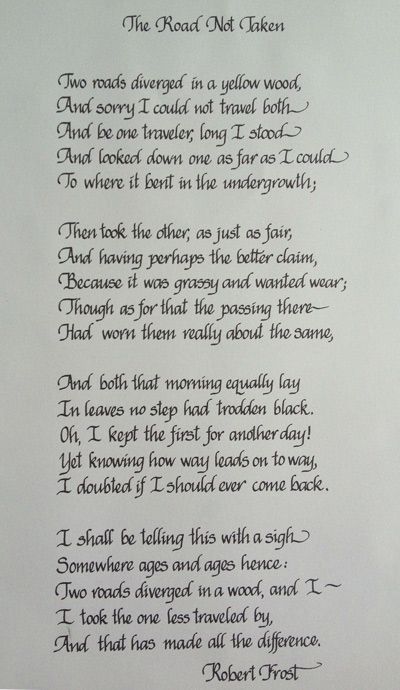 The Road Not Taken
Two roads diverged in a yellow wood,
And sorry I could not travel both
And be one traveler, long I stood
And looked down one as far as I could
To where it bent in the undergrowth;
Then took the other, as just as fair,
And having perhaps the better claim,
Because it was grassy and wanted wear;
Though as for that the passing there
Had worn them really about the same,
And both that morning equally lay
In leaves no step had trodden black.
Oh, I kept the first for another day!
Yet knowing how way leads on to way,
I doubted if I should ever come back.
I shall be telling this with a sigh
Somewhere ages and ages hence:
Two roads diverged in a wood, and I~
I took the one less traveled by,
And that has made all the difference.
Robert Frost